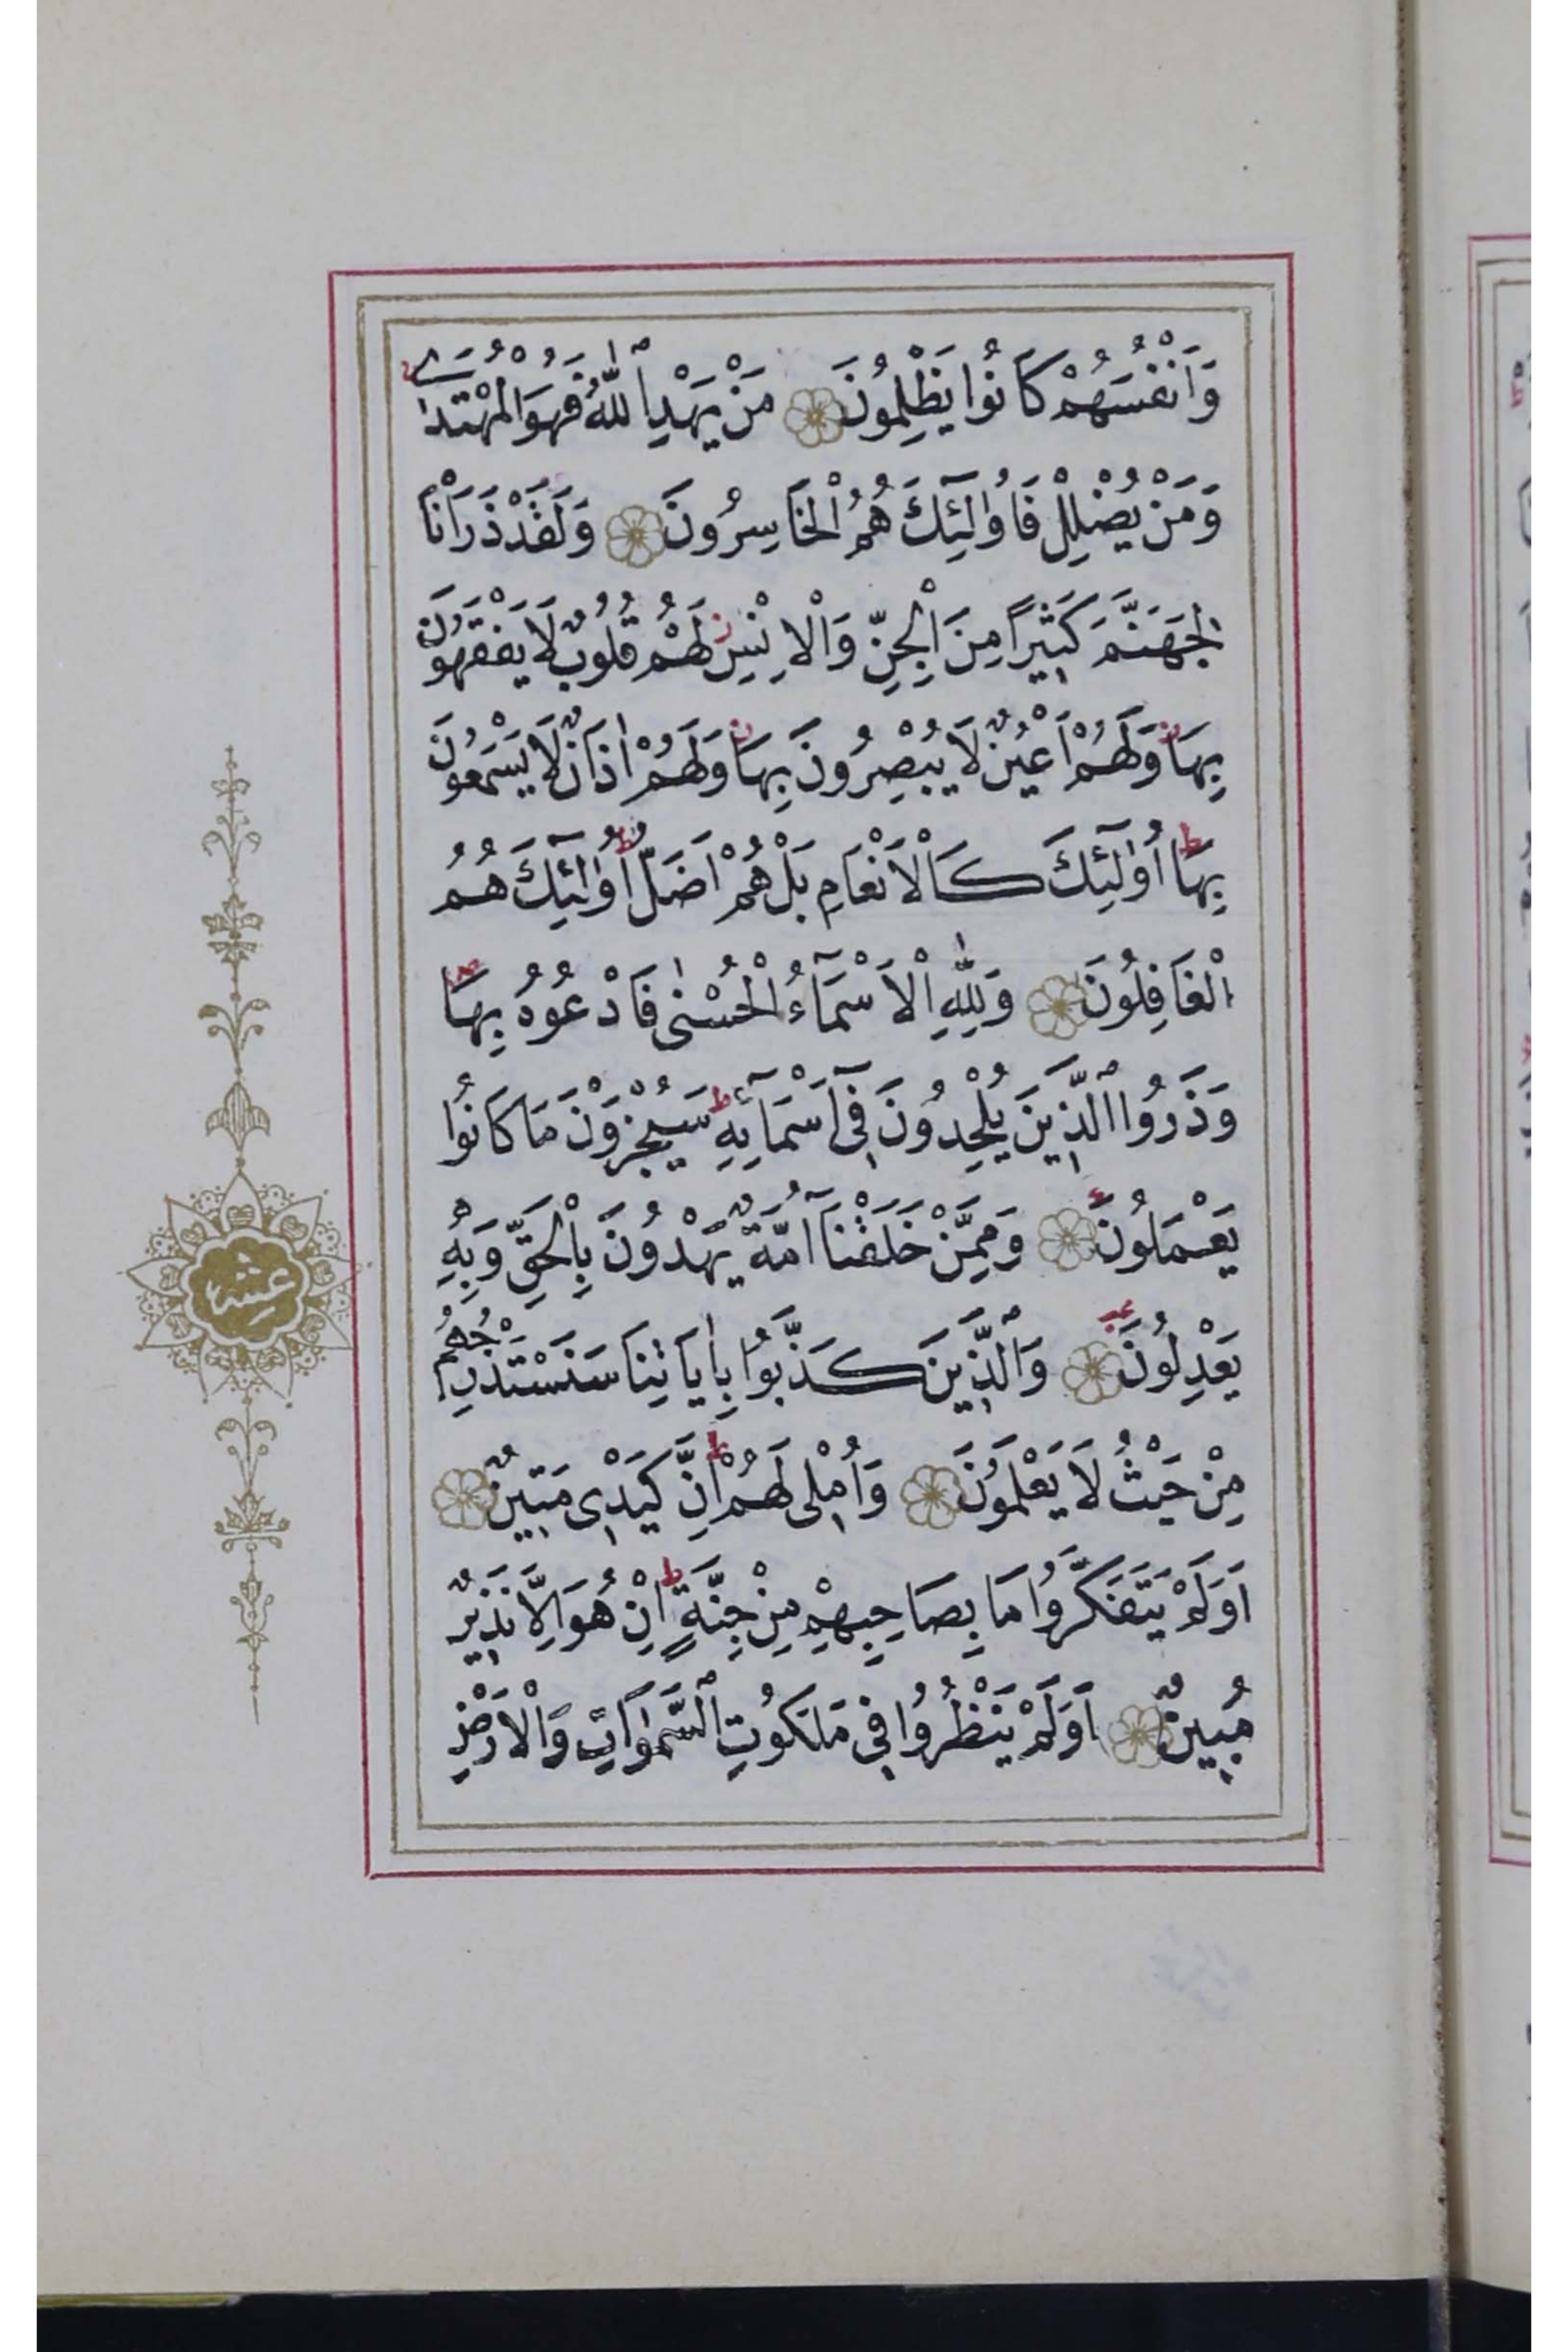 وَاَنْفُسَهُمْ كَانُوا يَظْلِمُونَ مَنْ يَهْدِ اللّٰهُ فَهُوَ الْمُهْتَدٖي
وَمَنْ يُضْلِلْ فَاُو۬لٰٓئِكَ هُمُ الْخَاسِرُونَ وَلَقَدْ ذَرَاْنَا
لِجَهَنَّمَ كَثٖيرًا مِنَ الْجِنِّ وَالْاِنْسِ ز لَهُمْ قُلُوبٌ لَا يَفْقَهُونَ
بِهَا ز وَلَهُمْ اَعْيُنٌ لَا يُبْصِرُونَ بِهَا ز وَلَهُمْ اٰذَانٌ لَا يَسْمَعُونَ
بِهَا ط اُو۬لٰٓئِكَ كَالْاَنْعَامِ بَلْ هُمْ اَضَلُّ ط اُو۬لٰٓئِكَ هُمُ
الْغَافِلُونَ وَلِلّٰهِ الْاَسْمَٓاءُ الْحُسْنٰى فَادْعُوهُ بِهَا ص
وَذَرُوا الَّذٖينَ يُلْحِدُونَ فٖٓي اَسْمَٓائِهِ ط سَيُجْزَوْنَ مَا كَانُوا
يَعْمَلُونَ وَمِمَّنْ خَلَقْنَٓا اُمَّةٌ يَهْدُونَ بِالْحَقِّ وَبِهٖ
يَعْدِلُونَ وَالَّذٖينَ كَذَّبُوا بِاٰيَاتِنَا سَنَسْتَدْرِجُهُمْ
مِنْ حَيْثُ لَا يَعْلَمُونَ وَاُمْلٖي لَهُمْ ط اِنَّ كَيْدٖي مَتٖينٌ
اَوَلَمْ يَتَفَكَّرُوا مَا بِصَاحِبِهِمْ مِنْ جِنَّةٍ ط اِنْ هُوَ اِلَّا نَذٖيرٌ
مُبٖينٌ اَوَلَمْ يَنْظُرُوا فٖي مَلَكُوتِ السَّمٰوَاتِ وَالْاَرْضِ
عشر